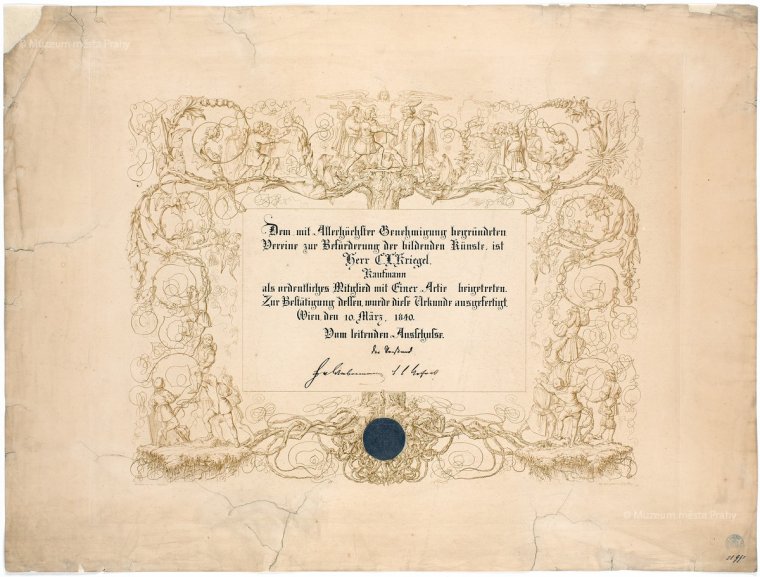 © Muzeum města Prahy
Dem mit Allerhöchster Genehmigung begründeten
Vereine zur Beförderung der bildenden Künste, ist
Herr C.L.Kriegel,
Kaufmann
als ordentliches Mitglied mit Einer Actie beigetreten.
Zur Bestätigung dessen, wurde diese Urkunde ausgefertigt.
Wien, den 10. März, 1840.
Vom leitenden Ausschusse.
© Muzeum města Prahy